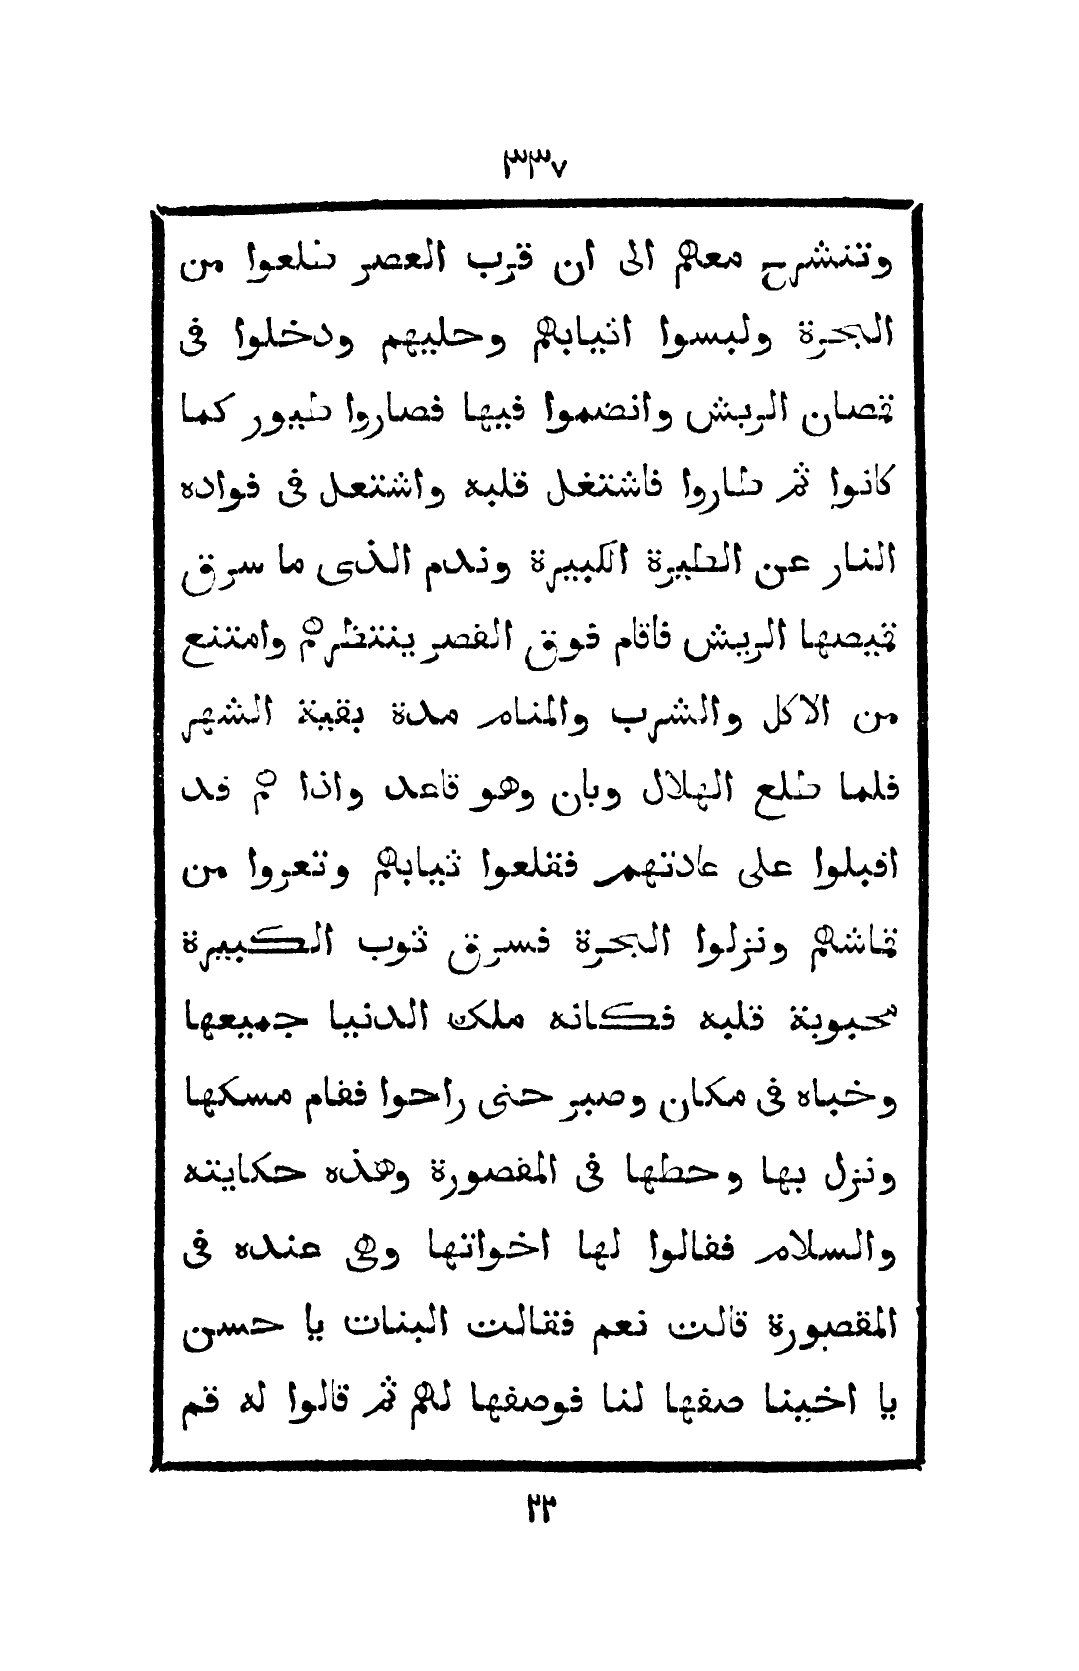 ٣٣٧
وتنشرح معهم الى ان قرب العصر طلعوا من
البحرة ولبسوا اثيابهم وحليهم ودخلوا فى
قمصان الريش وانضموا فيها فصاروا طيور كما
كانوا ثم طاروا فاشتغل قلبه واشتعل فى فواده
النار عن الطيرة الكبيرة وندم الذى ما سرق
قميصها الريش فاقام فوق القصر ينتظرهم وامتنع
من الاكل والشرب والمنام مدة بقية الشهر
فلما طلع الهلال وبان وهو قاعد واذا هم قد
اقبلوا على عادتهم فقلعوا ثيابهم وتعروا من
قماشهم ونزلوا البحرة فسرق ثوب الكبيرة
محبوبة قلبه فكانه ملك الدنيا جميعها
وخباه فى مكان وصبر حتى راحوا فقام مسكها
ونزل بها وحطها فى المقصورة وهذه حكايته
والسلام فقالوا لها اخواتها وهى عنده فى
المقصورة قالت نعم فقالت البنات يا حسن
يا اخينا صفها لنا فوصفها لهم ثم قالوا له قم
٢٢